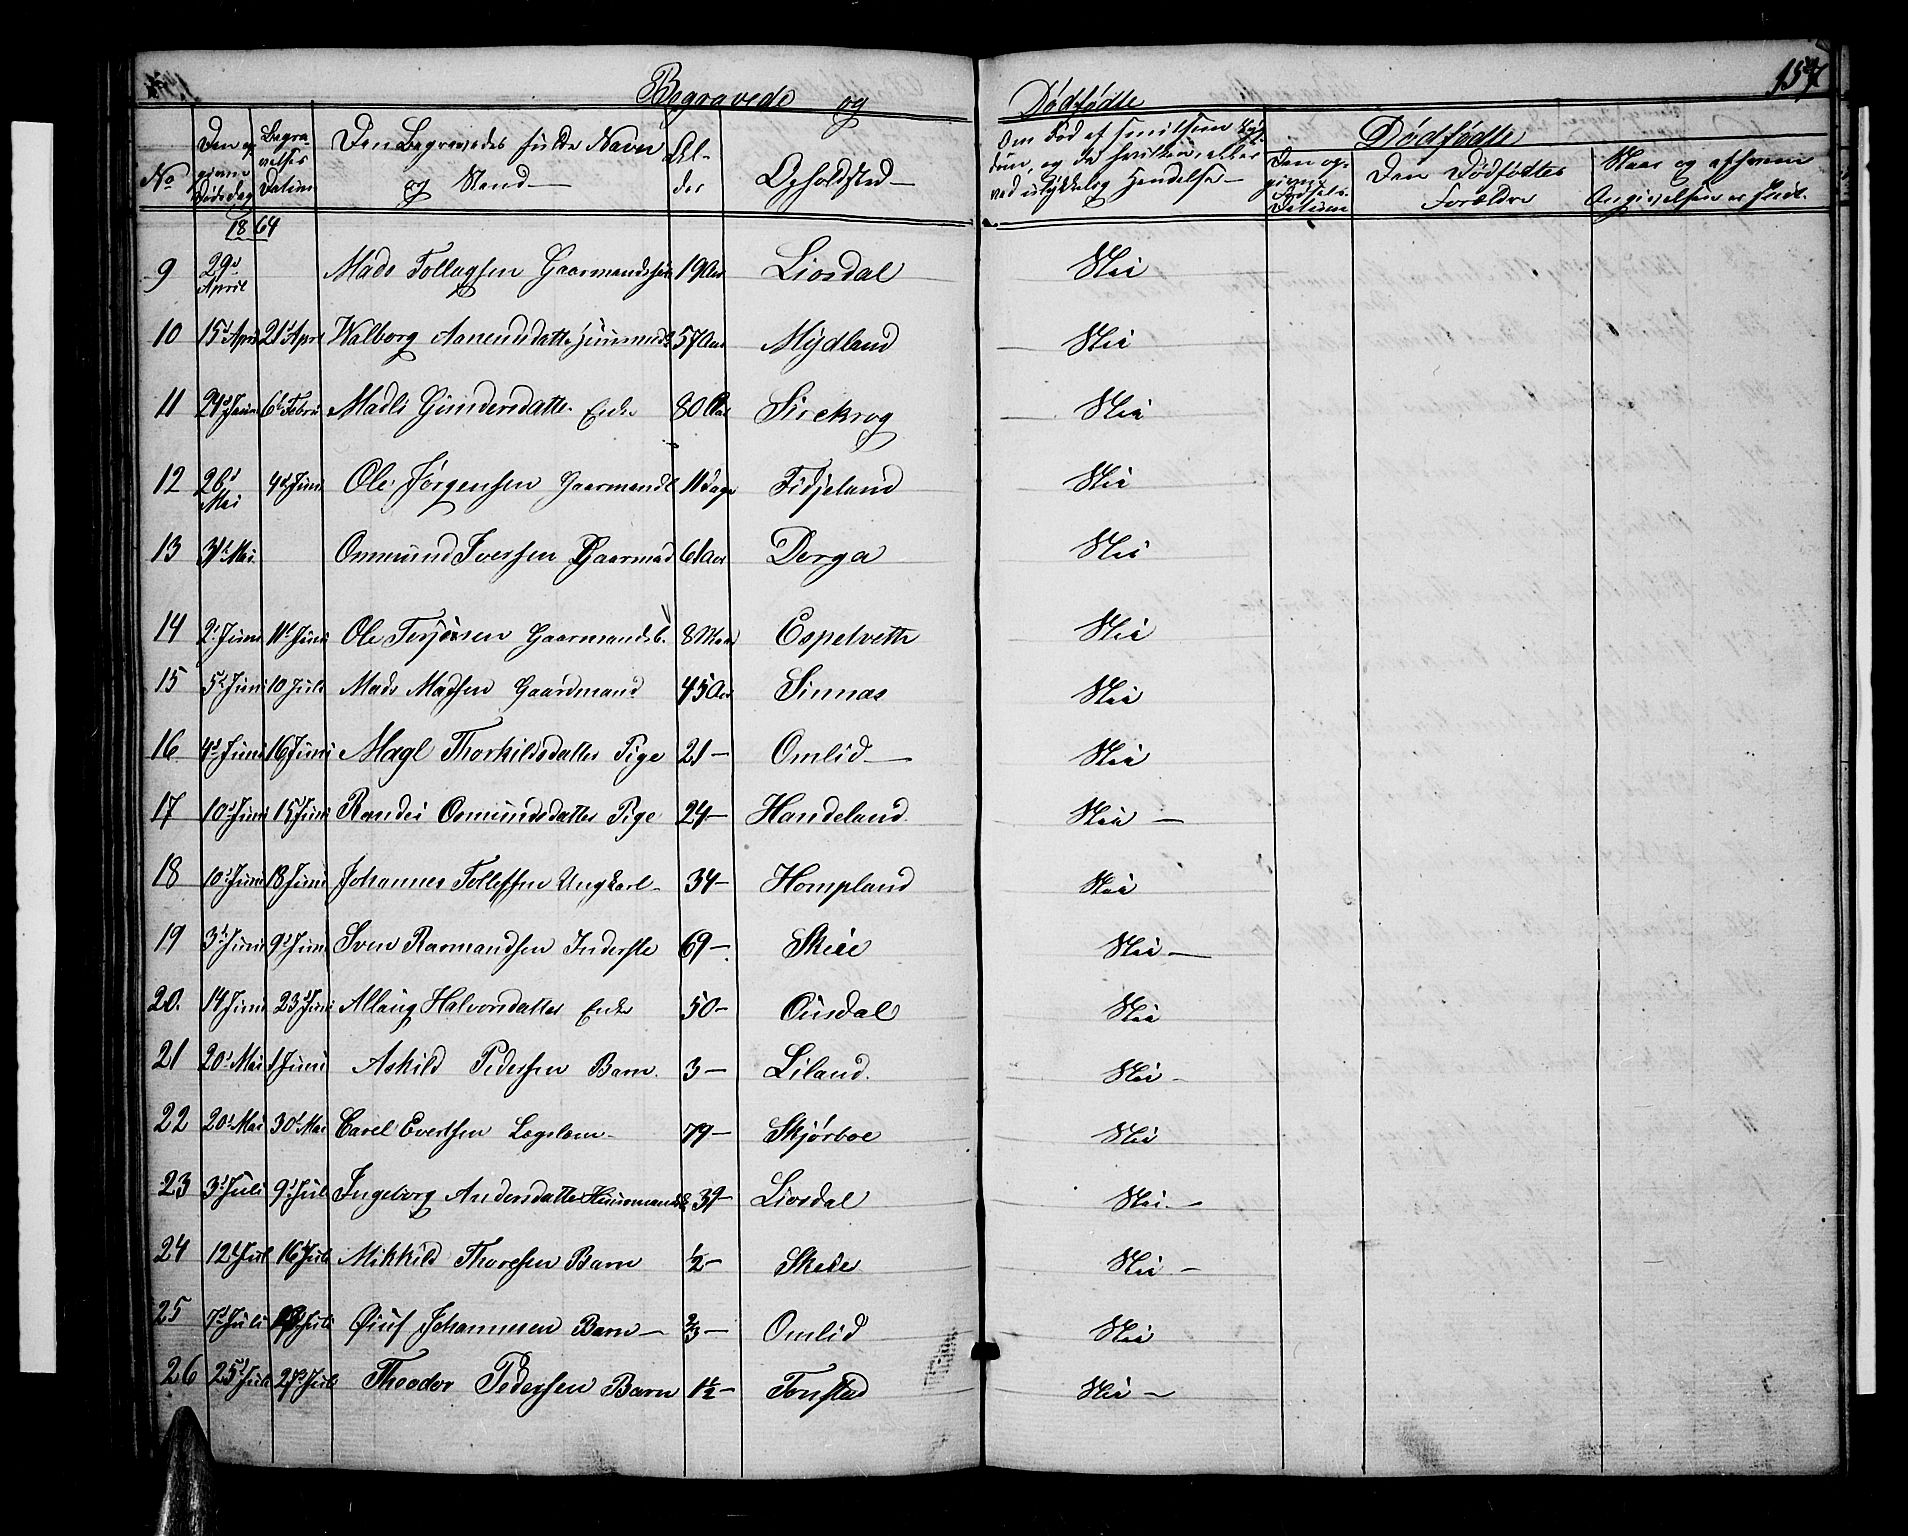 Begravede og Dødfødte 157
No
Den opgivne Dødsdag
Begravelses Datum
Den Begravedes fulde Navn og Stand
Alder
Opholdsted
Om Død af smitsom Sygdom, og da hvilken, eller ved ulykkelig Hendelse
Dødfødte
Den opgivne Fødsels Datum
Den Dødfødtes Forældre
Naar og af hvem Angivelsen er skeet.
1864
9 29d April Mads Tollagsen Gaarmandssøn 19 Aar Liosdal Nei
10 15d April 21d April Walborg Aanendsdatter Huusmands 57 Aar Mydland Nei
11 29d Januar 6d Febru Madli Gundersdatter Enke 80 Aar Sirekrog Nei
12 26d Mai 4d Juni Ole Jørgensen Gaarmandb 11 Dage Fidjeland Nei
13 31d Mai Ommund Iversen Gaarmad 61 Aar Derga Nei
14 2d Juni 11d Juni Ole Terjesen Gaarmandsb. 8 Maa Espetvetth Nei
15 5d Juni 10 Juli Mads Madsen Gaardmand 45 Aar Sinnas Nei
16 4d Juni 16 Juni Magl Thorkildsdatter Pige 21 — Omlid — Nei
17 10d Juni 15 Juni Randei Osmundsdatter Pige 24 — Handeland Nei —
18 10d Juni 18 Juni Johannes Tollefsen Ungkarl — 34 — Hompland Nei
19 3d Juni 9d Juni Sven Rasmandsen Inderste 69 — Skeie Nei —
20. 14 Juni 23d Juni Allaug Halvorsdatter Enke 50 — Ousdal Nei
21 20d Mai 1 Juni Askild Pedersen Barn. 3 — Liland. Nei —
22 20d Mai 30d Mai Carel Evertsen Lægslem — 79 — Skjørboe Nei
23 3d Juli 9d Jul Ingeborg Andersdatter Huusmands 39 — Liosdal Nei. —
24 12d Jul 16d Jul Mikkild Thoresen Barn 1/2 — Skeie Nei —
25 7d Juli Juli Øiuf Johannesen Barn — 2/3 — Omlid Nei
26 25d Juli 27d Jul Theodor Pedersen Barn 1 1/2 — Tonstad Nei —